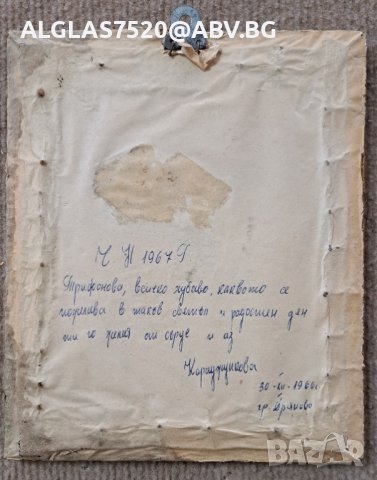 ALGLAS7520@ABV.BG
Ч. Н 1967 Г.
Трифонова, всичко хубаво, каквото се
пожелава в такъв светъл и радостен ден
ти го желая от сърце и аз
Караджукова
30-XII-1966 г.
гр. Дряново
BAZAR